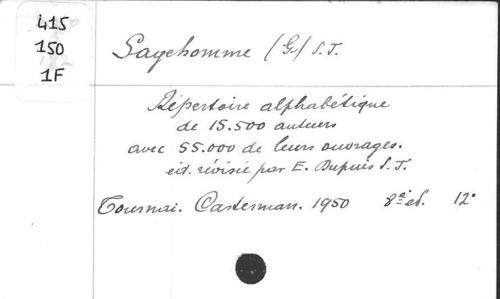 415
150
1F
Sagehomme (G.) S.J.
Répertoire alphabétique
de 15.500 auteurs
avec 55.000 de leurs ouvrages.
éd. révisée par E. Dupuis S.J.
Tournai. Casterman. 1950 8e éd. 12°